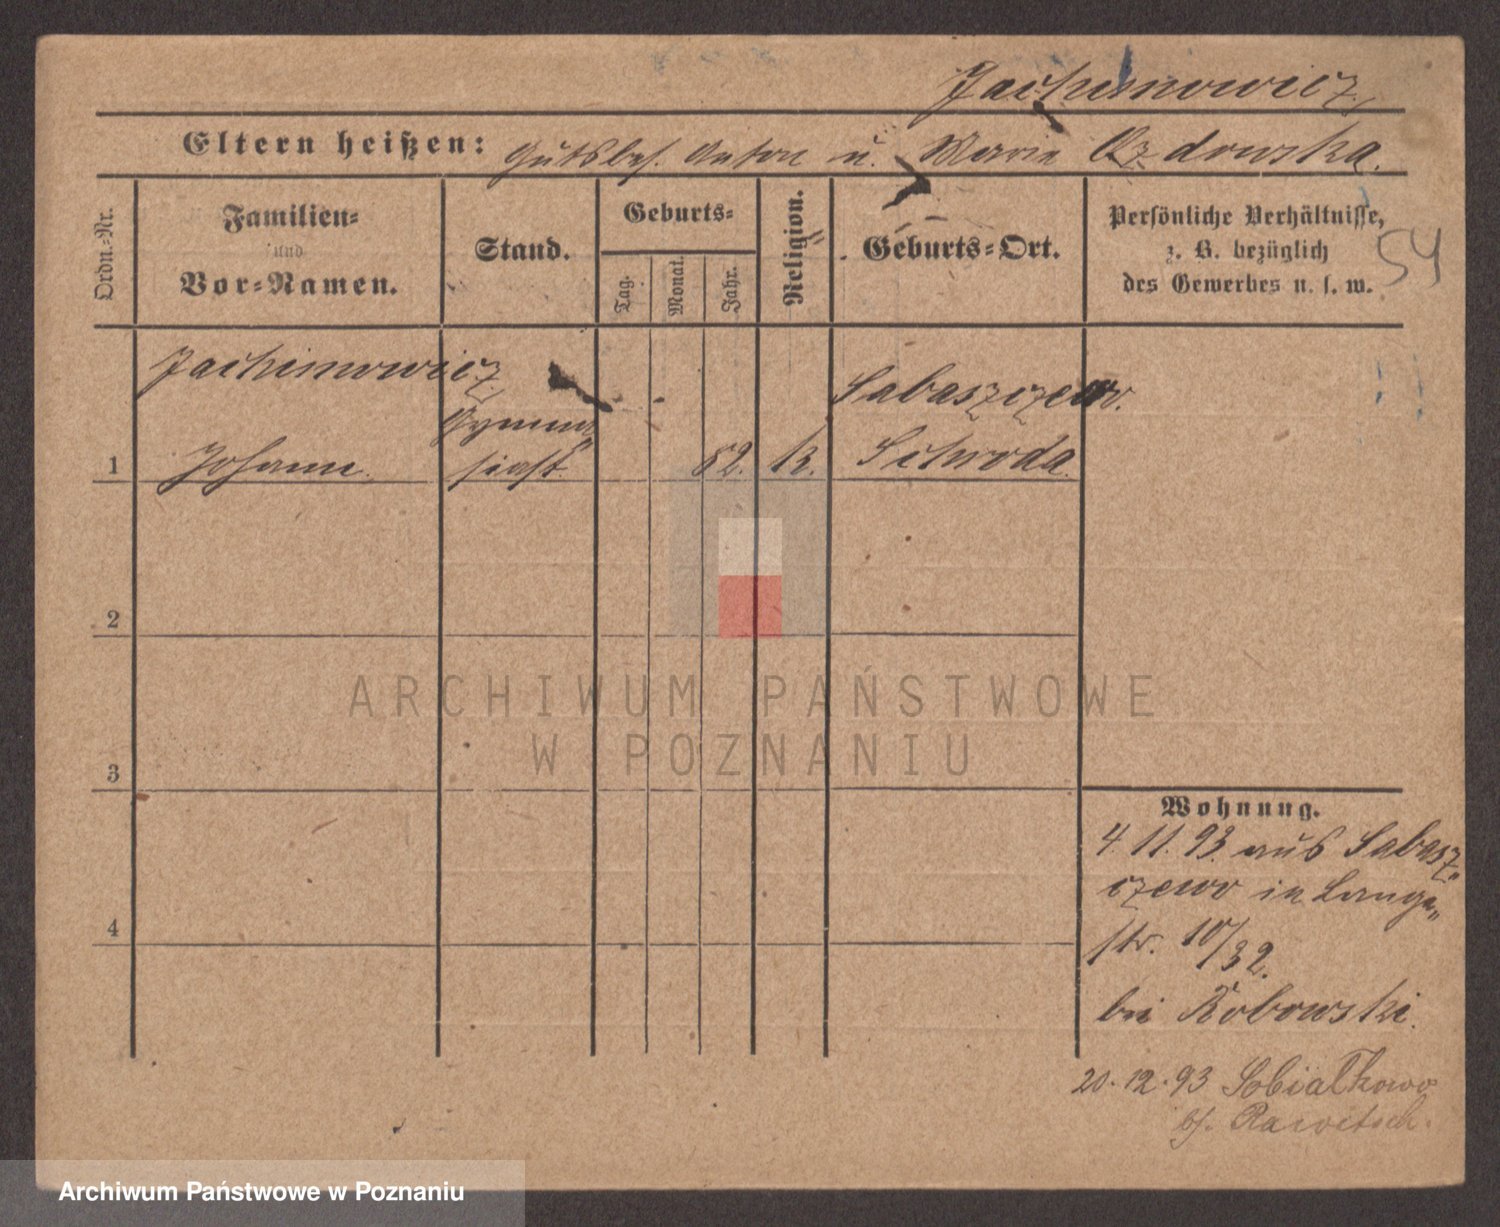 Jachimowicz,
Eltern heißen: Gutsbes. Anton u. Marie Ozdowska.
Ordn.-Nr.
Familien-
und
Vor-Namen.
Stand.
Geburts-
Tag.
Monat.
Jahr.
Religion.
Geburts-Ort.
Persönliche Verhältnisse,
z. B. bezüglich
des Gewerbes u. s. w.
54
Jachimowicz,
Gymna-
1
Johann.
siast.
82.
k.
Sabaszczewo.
Schroda
2
3
4
ARCHIWUM PAŃSTWOWE
W POZNANIU
Wohnung.
4. 11. 93. aus Sabasz-
czewo in Lange-
str. 10/32.
bei Robowski.
20. 12. 93 Sobialkowo
b/. Rawitsch.
Archiwum Państwowe w Poznaniu